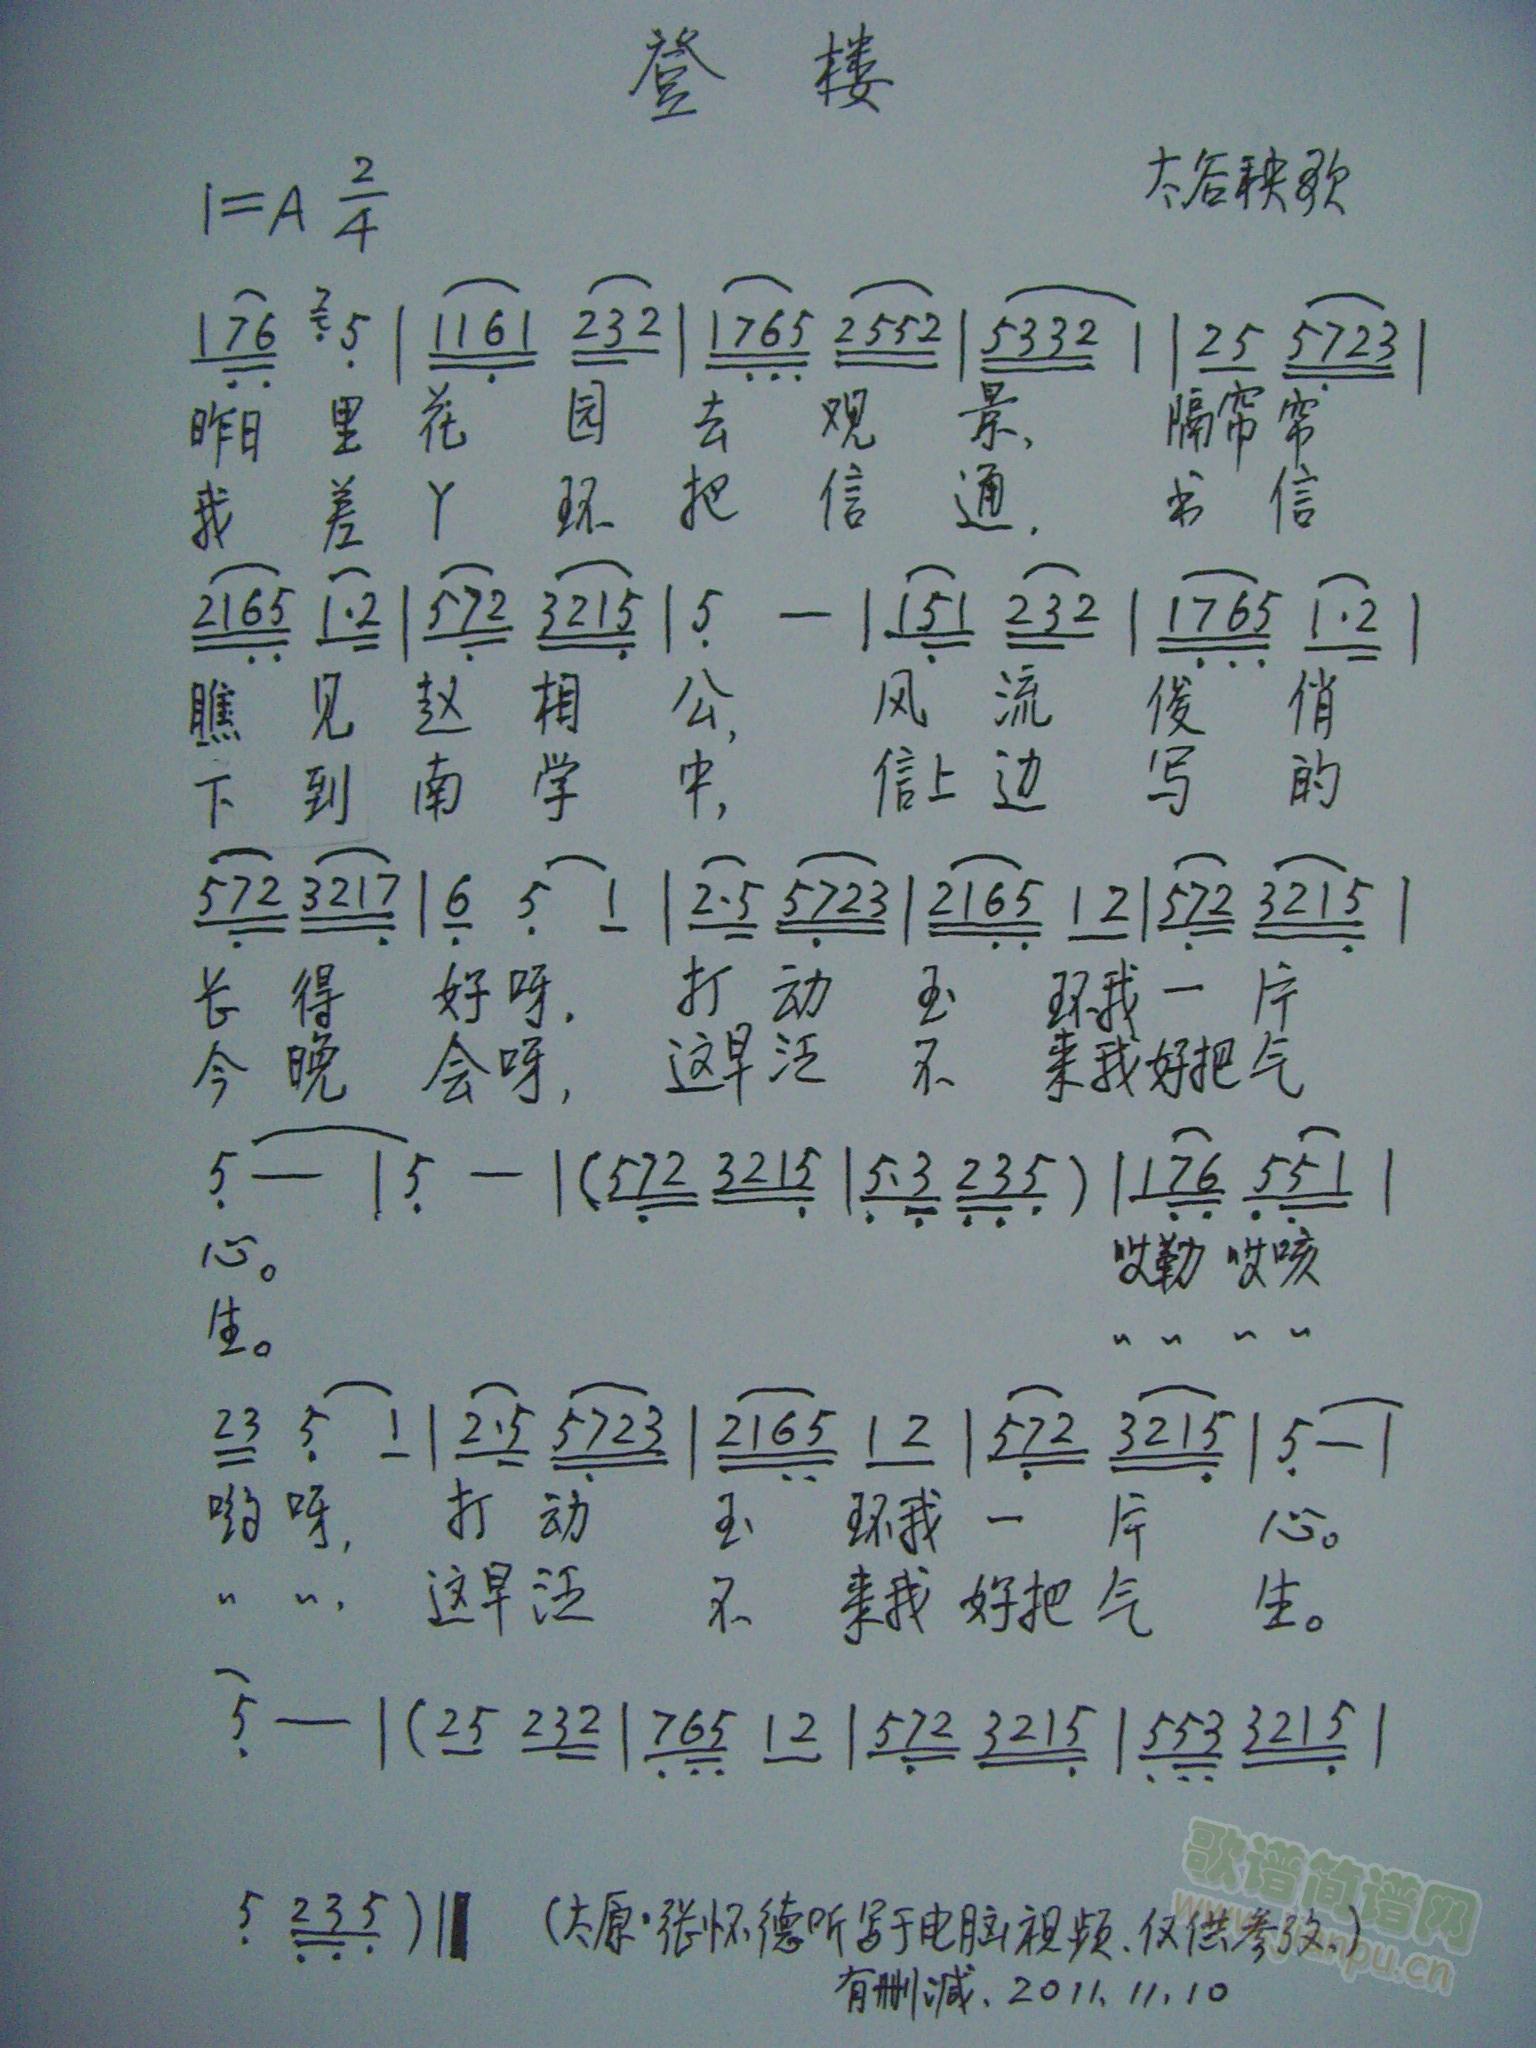 登 楼
太谷秧歌
1=A 2/4
176 5 | 1161 232 | 1765 2552 | 5332 1 | 25 5723 |
昨日 里 花 园 去 观 景、 隔帘 帘
我 差 丫 环 把 信 通, 书 信
2165 1·2 | 572 3215 | 5 — | 151 232 | 1765 1·2 |
瞧 见 赵 相 公, 风 流 俊 俏
下 到 南 学 中, 信上 边 写 的
572 3217 | 6 5 1 | 2·5 5723 | 2165 12 | 572 3215 |
长 得 好 呀, 打 动 玉 环我 一 片
今 晚 会 呀, 这早 泛 不 来我 好把 气
5 — | 5 — | (572 3215 | 5·3 235) | 176 551 |
心。 哎勒 哎咳
生。 〃 〃 〃 〃
23 5 1 | 2·5 5723 | 2165 12 | 572 3215 | 5 — |
哟 呀, 打 动 玉 环我 一 片 心。
〃 〃, 这早 泛 不 来我 好把 气 生。
5 — | (25 232 | 765 12 | 572 3215 | 553 3215 |
5 235) ‖ (太原·张怀德听写于电脑视频、仅供参考、)
有删减、2011、11、10
歌谱简谱网
www.jianpu.cn